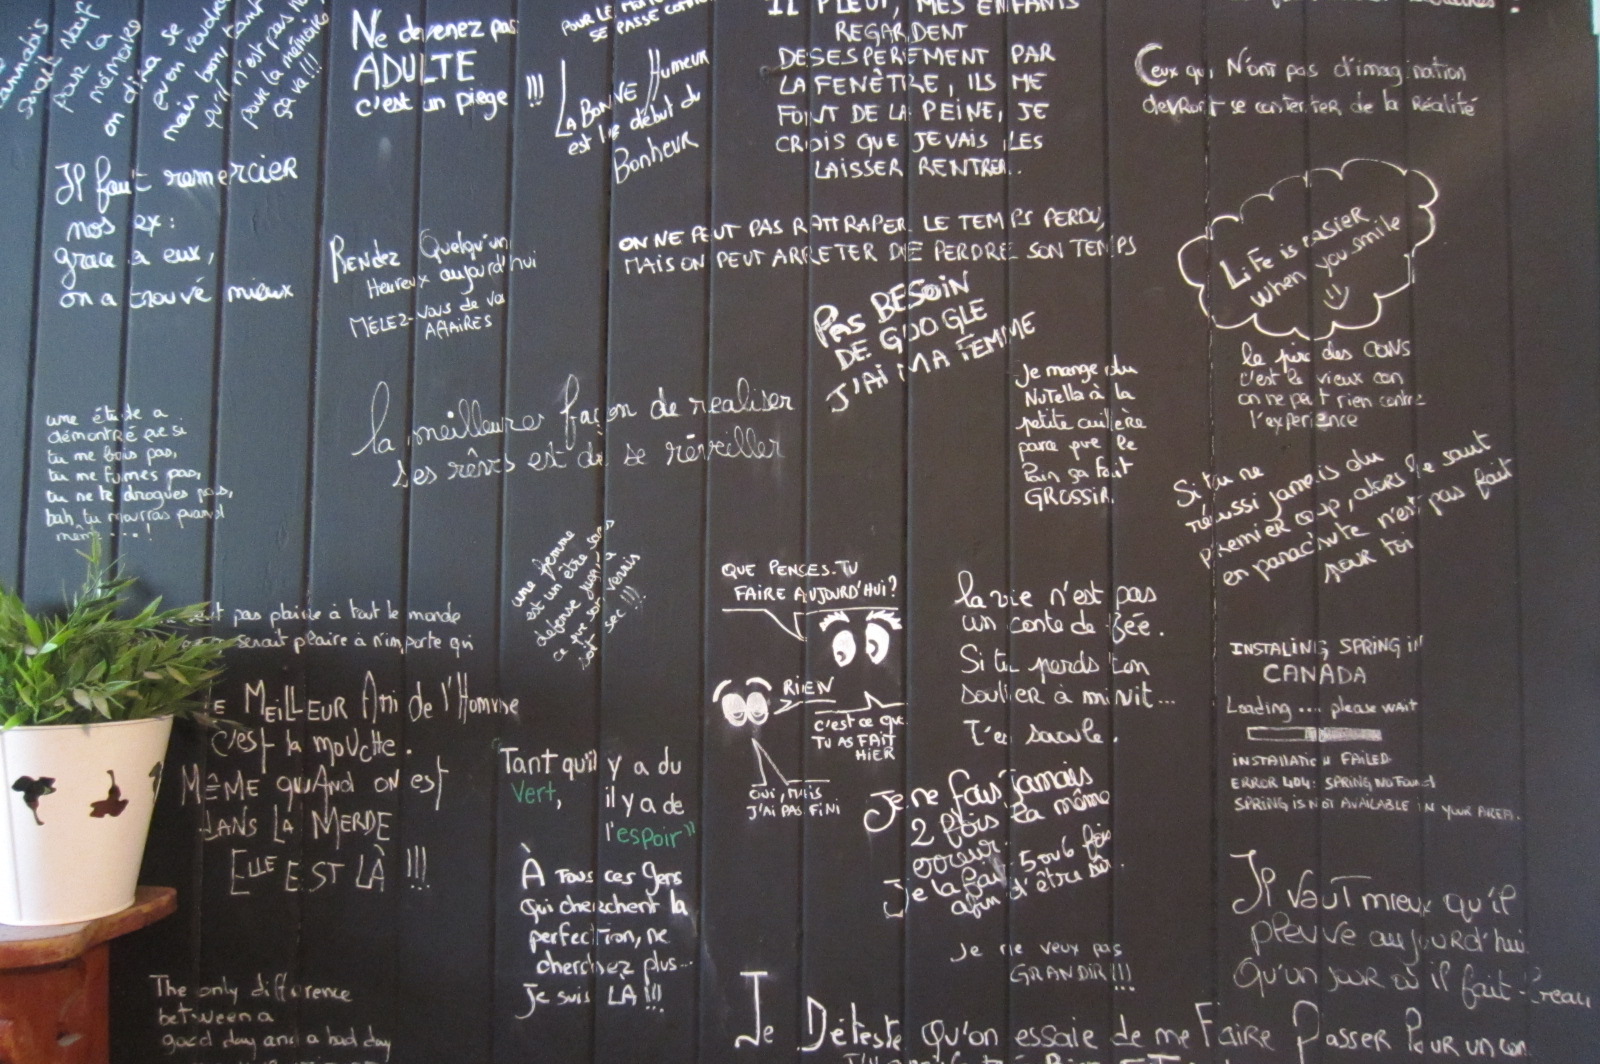 cannabis
serait nocif
pour la
mémoires
on dira se
qu'on voudra
mais bon tant
qu'il n'est pas
pour la mémoire
ça va !!!
Ne devenez pas
ADULTE
c'est un piege !!!
POUR LE
SE PASSE COMME
LA BONNE Humeur
est le début du
Bonheur
IL PLEUT, MES ENFANTS
REGARDENT
DESESPEREMENT PAR
LA FENÊTRE, ILS ME
FONT DE LA PEINE, JE
CROIS QUE JE VAIS LES
LAISSER RENTRER..
Ceux qui N'ont pas d'imagination
devront se contenter de la Réalité
Il faut remercier
nos ex :
grace a eux,
on a trouvé mieux
Rendez Quelqu'un
Heureux aujourd'hui
MÊLEZ-Vous de Vos
AFFAIRES
ON NE PEUT PAS RATTRAPER LE TEMPS PERDU,
MAIS ON PEUT ARRETER DE PERDRE SON TEMPS
LiFe is easier
when you smile
PAS BESOIN
DE GOOGLE
J'AI MA FEMME
Je mange du
NUTella à la
petite cuillère
parce que le
Pain ça fait
GROSSIR.
le pire des CONS
c'est le vieux con
on ne peut rien contre
l'expérience
la meilleure façon de realiser
ses rêves est de se réveiller
une étude a
démontré que si
tu ne bois pas,
tu ne fumes pas,
tu ne te drogues pas,
bah, tu mourras quand
même....!
Si tu ne
réussi jamais du
premier coup, alors le saut
en parachute n'est pas fait
pour toi
une femme
est un être sans
defense jusqu'à
ce que son vernis
soit sec !!!
QUE PENCES-TU
FAIRE AUJOURD'HUI?
RIEN
C'EST CE QUE
TU AS FAIT
HIER
OUI, MAIS
J'AI PAS FINI
la vie n'est pas
un conte de fée.
Si tu perds ton
soulier à minuit...
T'es saoule.
peut pas plaire à tout le monde
serait plaire à n'importe qui
LE MEILLEUR Ami de l'Homme
C'est la mouche.
MÊME quAnd on est
DANS LA MERDE
ELLE EST LÀ !!!
INSTALING SPRING in
CANADA
Loading.... please wait
INSTALLATION FAILED
ERROR 404: SPRING NOT FOUND
SPRING IS NOT AVAILABLE IN YOUR AREA.
Tant qu'il y a du
Vert, il y a de
l'espoir"
Je ne fais jamais
2 fois la même
erreur.
Je la fais 5 ou 6 fois
afin d'être sûr.
À Tous ces gens
Qui cherchent la
perfection, ne
cherchez plus...
Je suis LÀ !!!
Je ne veux pas
GRANDIR!!!
Il vauT mieux qu'il
pleuve aujourd'hui
Qu'un jour où il fait beau
The only difference
between a
good day and a bad day
Je Déteste Qu'on essaie de me Faire Passer Pour un con